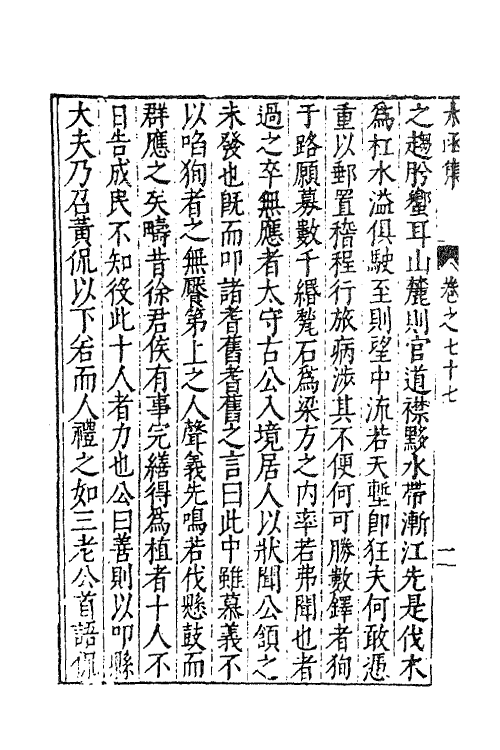 太函集 卷之七十七 二
之趨肣蠻耳山麓則官道襟黟水帶漸江先是伐木
為杠水溢俱駛至則望中流若天塹即狂夫何敢憑
重以郵置稽程行旅病涉其不便何可勝數鐸者狥
于路願募數千緡甃石為梁方之内率若弗聞也者
過之卒無應者太守古公入境居人以狀聞公頷之
未發也既而叩諸耆舊耆舊之言曰此中雖慕義不
以啗狥者之無厴第上之人聲義先鳴若伐懸鼓而
群應之矣疇昔徐君侯有事完繕得為植者十人不
日告成民不知役此十人者力也公曰善則以叩縣
大夫乃召黃侃以下若而人禮之如三老公首語侃